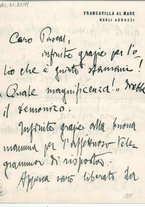 FRANCAVILLA AL MARE
NEGLI ABRUZZI
Caro Pascal,
infinite grazie per l'o-
lio che è giunto stamani!
"Quale magnificenza!"
il demonico.
Infinite grazie alla buona
mamma per l'affettuoso tele-
gramma di risposta.
Appena sarò liberato da